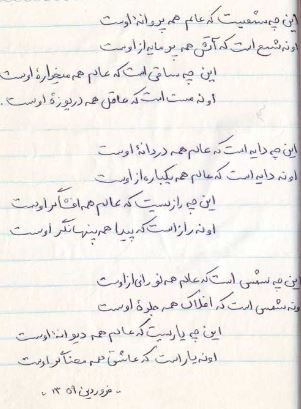 این چه شمعیست که عالم همه پروانهٔ اوست
او نه شمع است که آتش همه پر مایه از اوست
این چه ساقی است که عالم همه میخوارهٔ اوست
او نه مست است که عاقل همه دریوزهٔ اوست.
این چه دایه است که عالم همه دردانهٔ اوست
او نه دایه است که عالم همه یکباره از اوست
این چه رازیست که عالم همه افشاگر اوست
او نه راز است که پیدا همه پنهانگر اوست
این چه شمسی است که عالم همه نورای از اوست
او نه شمسی است که افلاک همه جلوهٔ اوست
این چه یاریست که عالم همه دیوانهٔ اوست
او نه یار است که عاشق همه معناگر اوست
- فروردین ۱۳۵۹ -